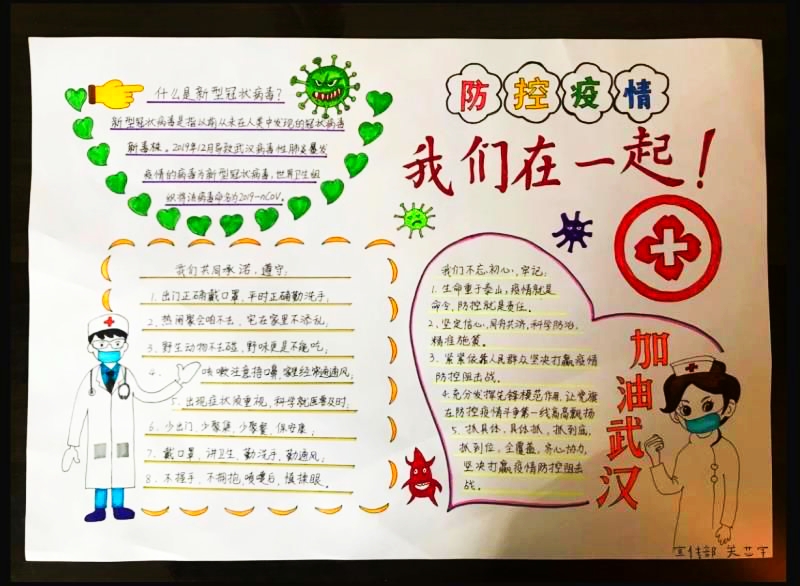 防控疫情
我们在一起!
什么是新型冠状病毒?
新型冠状病毒是指以前从未在人类中发现的冠状病毒
新毒株。2019年12月导致武汉病毒性肺炎暴发
疫情的病毒为新型冠状病毒,世界卫生组
织将该病毒命名为2019-nCoV。
我们共同承诺,遵守:
1、出门正确戴口罩,平时正确勤洗手;
2、热闹聚会咱不去,宅在家里不添乱;
3、野生动物不去碰,野味更是不能吃;
4、咳嗽注意捂口鼻,家里经常通通风;
5、出现症状须重视,科学就医要及时;
6、少出门,少聚集,少聚餐,保安康;
7、戴口罩,讲卫生,勤洗手,勤通风;
8、不握手,不拥抱,喷嚏后,慎揉眼。
我们不忘初心,牢记:
1、生命重于泰山,疫情就是
命令,防控就是责任。
2、坚定信心,同舟共济,科学防治,
精准施策。
3、紧紧依靠人民群众坚决打赢疫情
防控阻击战。
4、充分发挥先锋模范作用,让党旗
在防控疫情斗争第一线高高飘扬
5、抓具体,具体抓,抓到底,
抓到位,全覆盖,齐心协力,
坚决打赢疫情防控阻击
战。
加油武汉
宣传部 关